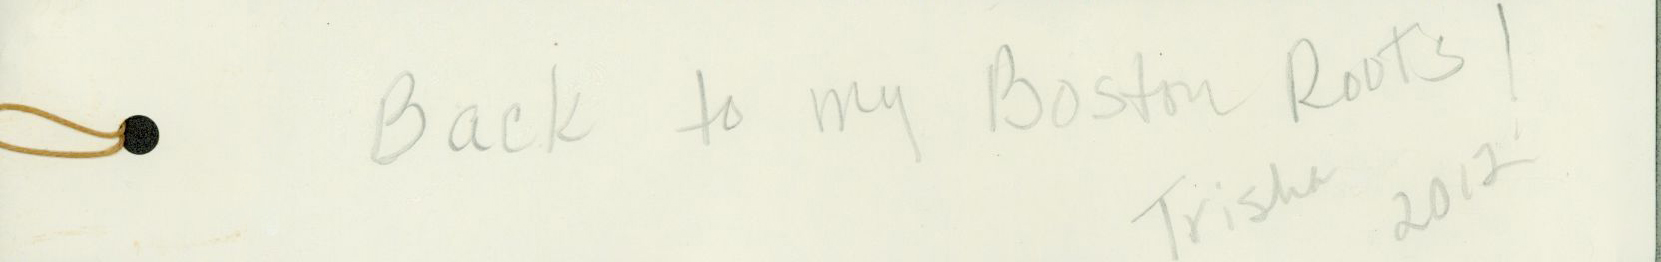 Back to my Boston Roots!
Trisha 2012